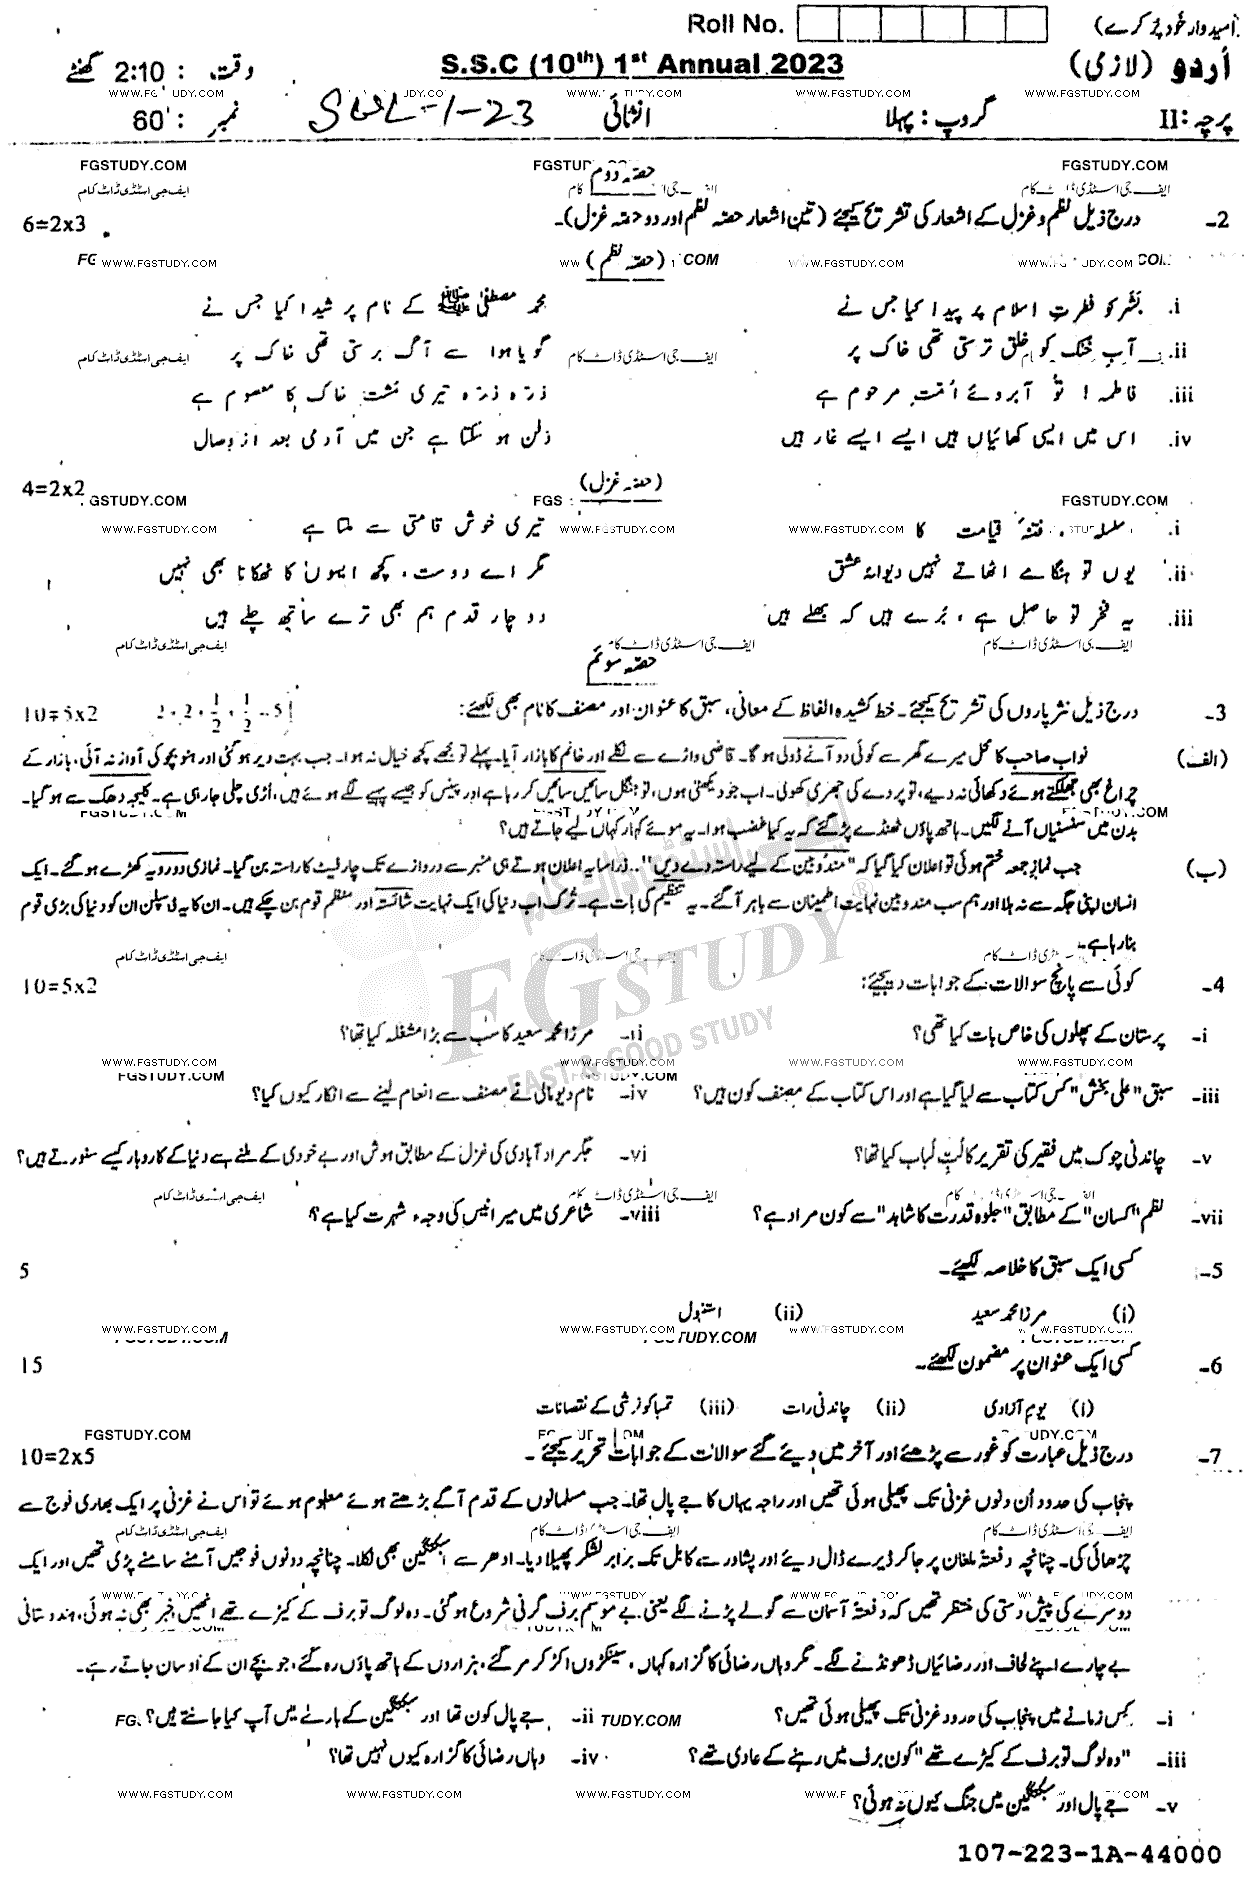 Roll No. (امیدوار خود پُر کرے)
اُردو (لازمی) S.S.C (10th) 1st Annual 2023 وقت : 2:10 گھنٹے
پرچہ: II گروپ : پہلا انشائی SWL-1-23 نمبر : 60
حصّہ دوم
2- درج ذیل نظم و غزل کے اشعار کی تشریح کیجئے (تین اشعار حصّہ نظم اور دو حصّہ غزل)۔ 6=2x3
(حصّہ نظم)
i. بشر کو فطرتِ اسلام پر پیدا کیا جس نے محمد مصطفیٰ ﷺ کے نام پر شیدا کیا جس نے
ii. آبِ خُنک کو خلق ترستی تھی خاک پر گویا ہوا سے آگ برستی تھی خاک پر
iii. فاطمہ! تُو آبروئے اُمّتِ مرحوم ہے ذرّہ ذرّہ تیری مُشتِ خاک کا معصوم ہے
iv. اس میں ایسی کھائیاں ہیں ایسے ایسے غار ہیں دفن ہو سکتا ہے جن میں آدمی بعد از وصال
(حصّہ غزل) 4=2x2
i. سلسلہ فتنۂ قیامت کا تیری خوش قامتی سے ملتا ہے
ii. یوں تو ہنگامے اٹھاتے نہیں دیوانۂ عشق مگر اے دوست، کچھ ایسوں کا ٹھکانا بھی نہیں
iii. یہ فخر تو حاصل ہے، بُرے ہیں کہ بھلے ہیں دو چار قدم ہم بھی ترے ساتھ چلے ہیں
حصّہ سوئم
3- درج ذیل نثر پاروں کی تشریح کیجئے۔ خط کشیدہ الفاظ کے معانی، سبق کا عنوان اور مصنف کا نام بھی لکھئے: 10=5x2
(الف) نواب صاحب کا محل میرے گھر سے کوئی دو آنے ڈولی ہو گا۔ قاضی واڑے سے نکلے اور خانم کا بازار آیا۔ پہلے تو مجھے کچھ خیال نہ ہوا۔ جب بہت دیر ہو گئی اور ہٹو بچو کی آواز نہ آئی، بازار کے
چراغ بھی جھلکتے ہوئے دکھائی نہ دیے، تو پردے کی جھری کھولی۔ اب جو دیکھتی ہوں، تو جنگل سائیں سائیں کر رہا ہے اور پینس کو جیسے پہیے لگے ہوئے ہیں، اُڑی چلی جا رہی ہے۔ کلیجہ دھک سے ہو گیا۔
بدن میں سنسنیاں آنے لگیں۔ ہاتھ پاؤں ٹھنڈے پڑ گئے کہ یہ کیا غضب ہوا۔ یہ موئے کہار کہاں لیے جاتے ہیں؟
(ب) جب نمازِ جمعہ ختم ہوئی تو اعلان کیا گیا کہ "مندوبین کے لیے راستہ دے دیں"۔ ذرا سا یہ اعلان ہوتے ہی منبر سے دروازے تک چار فیٹ کا راستہ بن گیا۔ نمازی دو رویہ کھڑے ہو گئے۔ ایک
انسان اپنی جگہ سے نہ ہلا اور ہم سب مندوبین نہایت اطمینان سے باہر آ گئے۔ یہ تنظیم کی بات ہے۔ تُرک اب دنیا کی ایک نہایت شائستہ اور منظم قوم بن چکے ہیں۔ ان کا یہ ڈسپلن ان کو دنیا کی بڑی قوم
بنا رہا ہے۔
4- کوئی سے پانچ سوالات کے جوابات دیجئے: 10=5x2
i- پرستان کے پھلوں کی خاص بات کیا تھی؟ ii- مرزا محمد سعید کا سب سے بڑا مشغلہ کیا تھا؟
iii- سبق "علی بخش" کس کتاب سے لیا گیا ہے اور اس کتاب کے مصنف کون ہیں؟ iv- نام دیو مالی نے مصنف سے انعام لینے سے انکار کیوں کیا؟
v- چاندنی چوک میں فقیر کی تقریر کا لُبِّ لُباب کیا تھا؟ vi- جگر مراد آبادی کی غزل کے مطابق ہوش اور بے خودی کے ملنے سے دنیا کے کاروبار کیسے سنورتے ہیں؟
vii- نظم "کسان" کے مطابق "جلوہ قدرت کا شاہد" سے کون مراد ہے؟ viii- شاعری میں میر انیس کی وجہء شہرت کیا ہے؟
5- کسی ایک سبق کا خلاصہ لکھیئے۔ 5
(i) مرزا محمد سعید (ii) استنبول
6- کسی ایک عنوان پر مضمون لکھئے۔ 15
(i) یومِ آزادی (ii) چاندنی رات (iii) تمباکو نوشی کے نقصانات
7- درج ذیل عبارت کو غور سے پڑھئے اور آخر میں دیئے گئے سوالات کے جوابات تحریر کیجئے۔ 10=2x5
پنجاب کی حدود اُن دنوں غزنی تک پھیلی ہوئی تھیں اور راجہ یہاں کا جے پال تھا۔ جب مسلمانوں کے قدم آگے بڑھتے ہوئے معلوم ہوئے تو اس نے غزنی پر ایک بھاری فوج سے
چڑھائی کی۔ چنانچہ دفعتہً ملغان پر جا کر ڈیرے ڈال دیئے اور پشاور سے کابل تک برابر لشکر پھیلا دیا۔ ادھر سے سبکتگین بھی نکلا۔ چنانچہ دونوں فوجیں آمنے سامنے پڑی تھیں اور ایک
دوسرے کی پیش دستی کی منتظر تھیں کہ دفعتہً آسمان سے گولے پڑنے لگے یعنی بے موسم برف گرنی شروع ہو گئی۔ وہ لوگ تو برف کے کیڑے تھے انھیں خبر بھی نہ ہوئی، ہندوستانی
بے چارے اپنے لحاف اور رضائیاں ڈھونڈنے لگے۔ مگر وہاں رضائی کا گزارہ کہاں، سینکڑوں اکڑ کر مر گئے، ہزاروں کے ہاتھ پاؤں رہ گئے، جو بچے ان کے اوسان جاتے رہے۔
i- کس زمانے میں پنجاب کی حدود غزنی تک پھیلی ہوئی تھیں؟ ii- جے پال کون تھا اور سبکتگین کے بارے میں آپ کیا جانتے ہیں؟
iii- "وہ لوگ تو برف کے کیڑے تھے" کون برف میں رہنے کے عادی تھے؟ iv- وہاں رضائی کا گزارہ کیوں نہیں تھا؟
v- جے پال اور سبکتگین میں جنگ کیوں نہ ہوئی؟
107-223-1A-44000